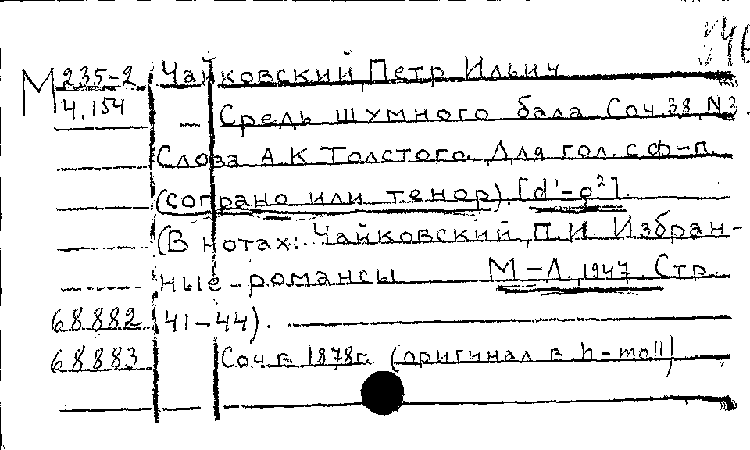 М 235-2 Чайковский, Петр Ильич
4.154 — Средь шумного бала Соч.38 N3.
Слова А.К Толстого. Для гол. с ф-п.
(сопрано или тенор). [d'-g²].
(В нотах: Чайковский, П.И. Избран-
ные романсы М-Л, 1947. Стр.
68882 41-44).
68883 Соч. в 1878г. (оригинал в h-moll)